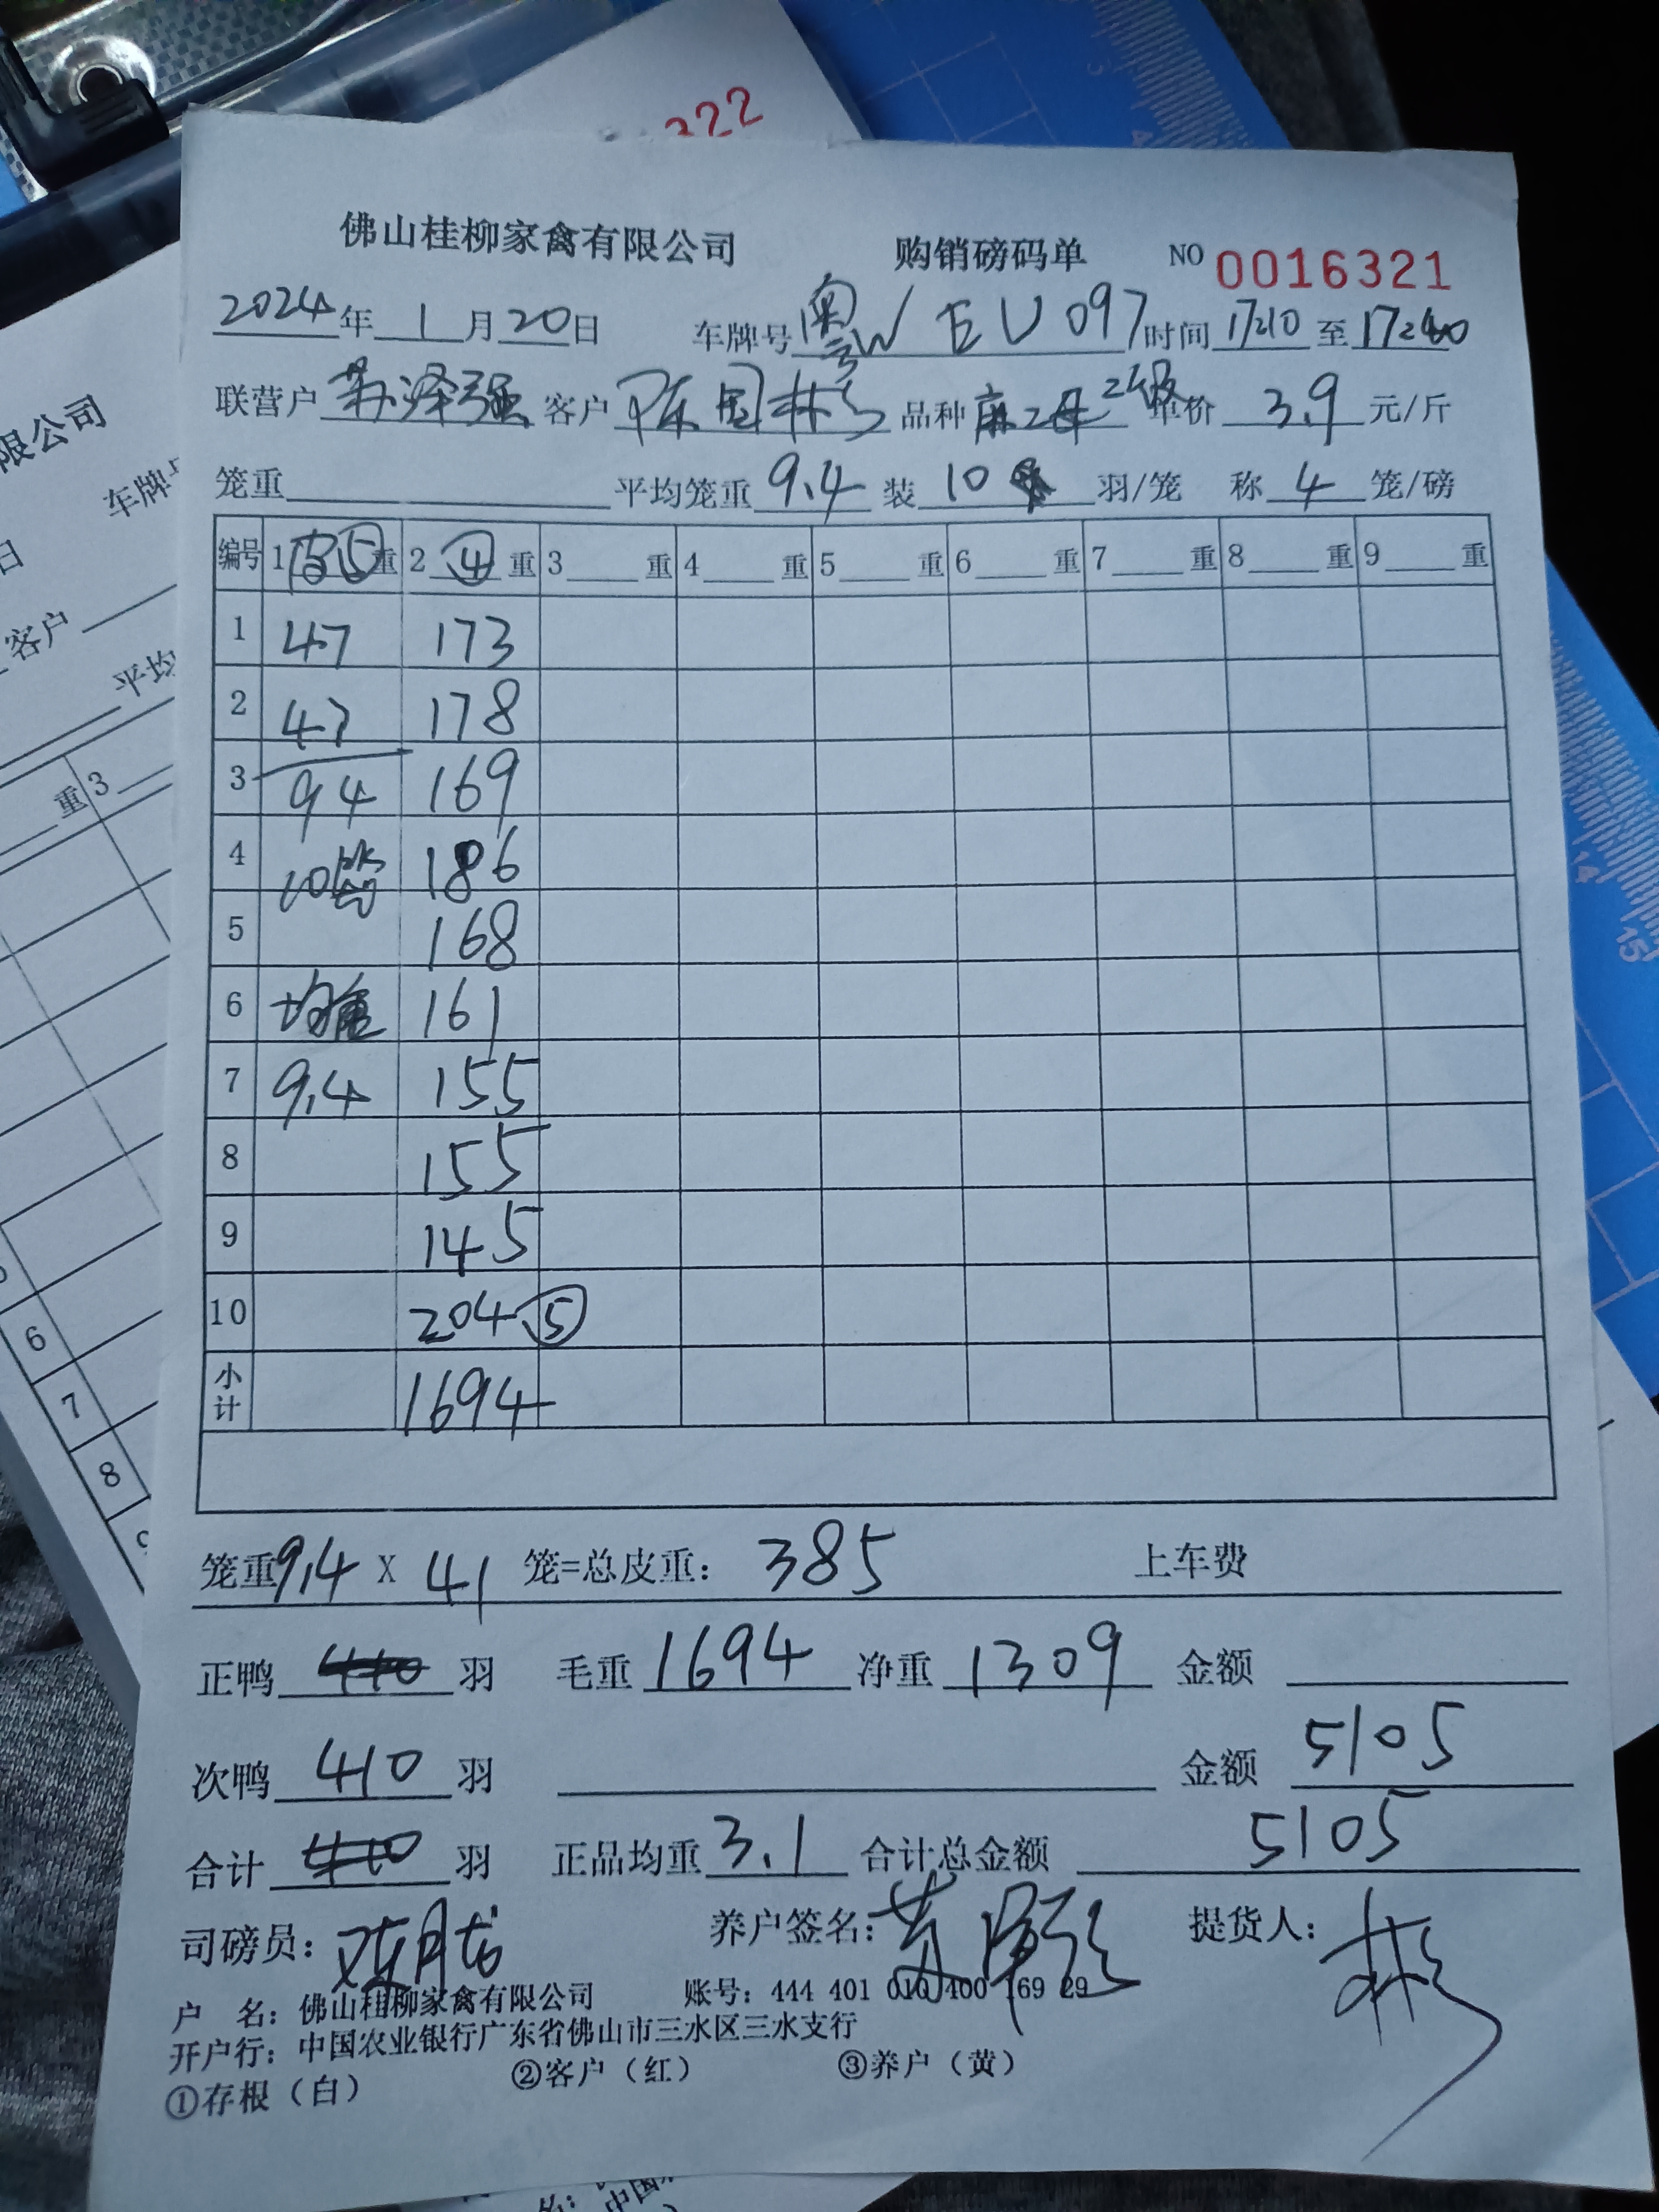 322
佛山桂柳家禽有限公司 购销磅码单 NO 0016321
2024年 1 月 20 日 车牌号 粤W EU097 时间 17:10 至 17:40
联营户 苏泽强 客户 陈国彬 品种 麻2母 2级 单价 3.9 元/斤
笼重 平均笼重 9.4 装 10 羽/笼 称 4 笼/磅
编号 1 皮⑤ 重 2 ④ 重 3 重 4 重 5 重 6 重 7 重 8 重 9 重
1 47 173
2 47 178
3 94 169
4 10笼 186
5 168
6 均重 161
7 9.4 155
8 155
9 145
10 204 ⑤
小计 1694
笼重 9.4 X 41 笼=总皮重: 385 上车费
正鸭 410 羽 毛重 1694 净重 1309 金额
次鸭 410 羽 金额 5105
合计 410 羽 正品均重 3.1 合计总金额 5105
司磅员: 养户签名: 苏泽强 提货人: 彬
户 名: 佛山桂柳家禽有限公司 账号: 444 401 010 400 169 29
开户行: 中国农业银行广东省佛山市三水区三水支行
①存根(白) ②客户(红) ③养户(黄)
限公司
车牌号
日
客户
平均
重 3
6
7
8
9
14
15